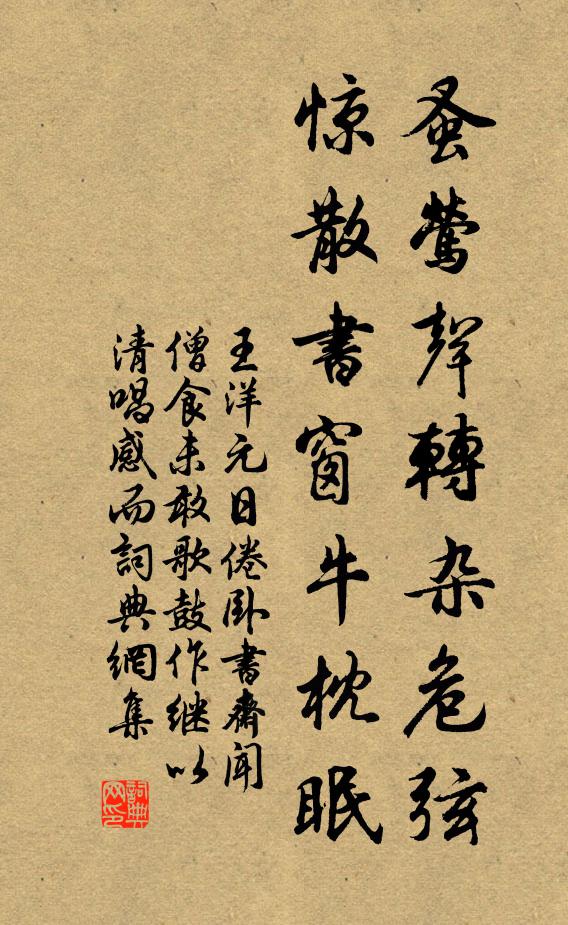 蚤鶯聲轉杂危弦
惊散書窗牛枕眠
王洋元日倦卧書齋闻
僧食未敢歌鼓作继以
清唱感而詞典網集
詞典网印